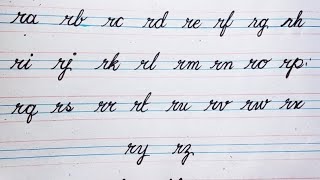 ra rb rc rd re rf rg rh
ri rj rk rl rm rn ro rp
rq rs rr rt ru rv rw rx
ry rz